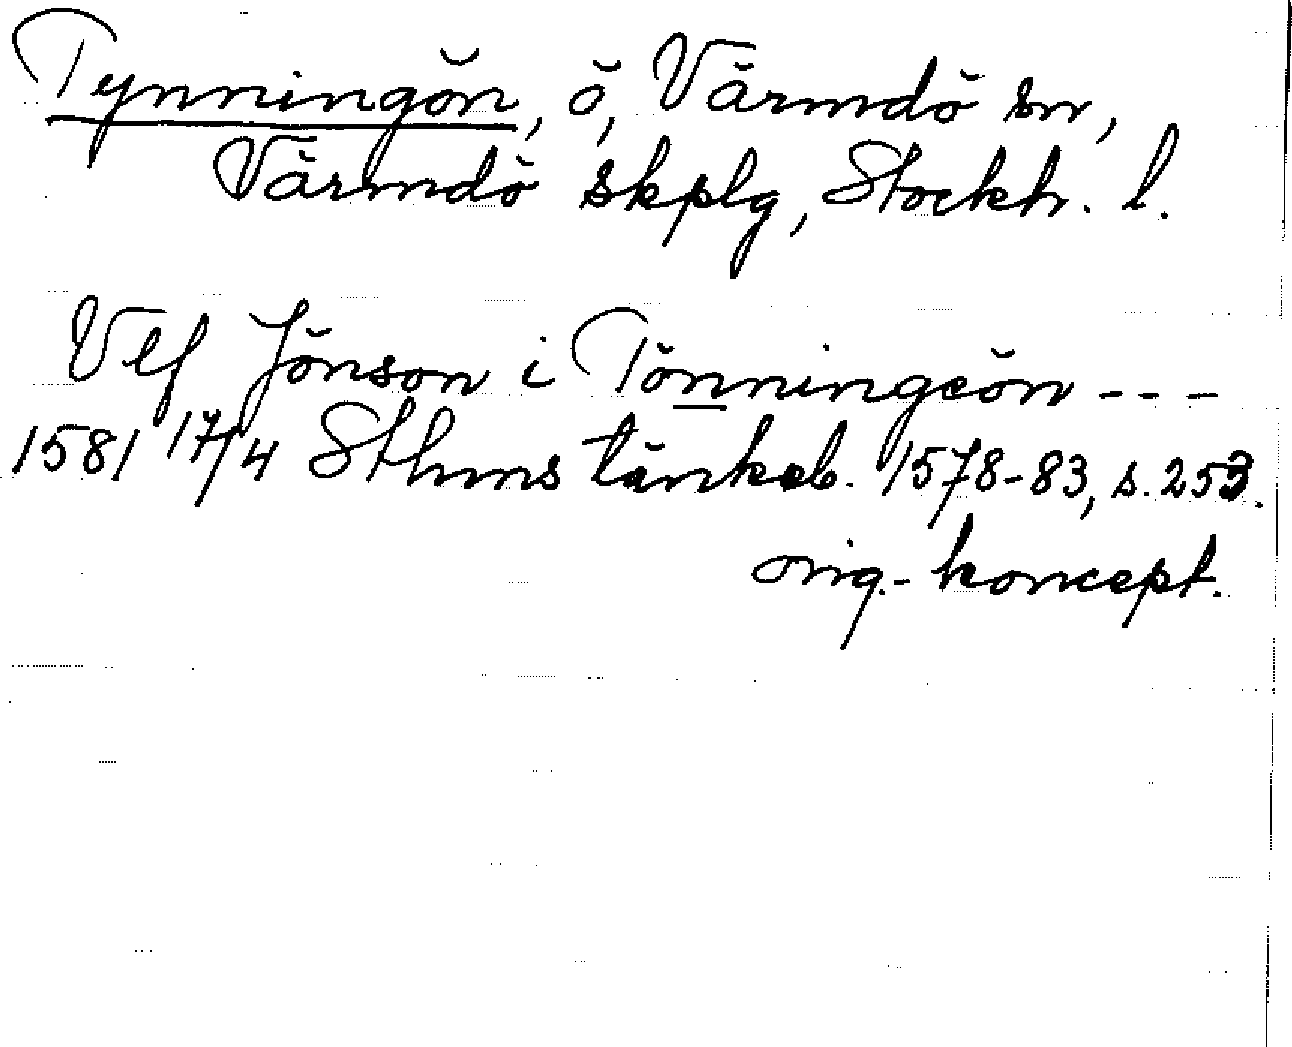 Tynningön, ö, Värmdö sn,
Värmdö skplg, Stockh. l.
Vlf Jönson i Tönningeön ---
1581 17/4 Sthms tänkeb. 1578-83, s. 253.
orig.-koncept.